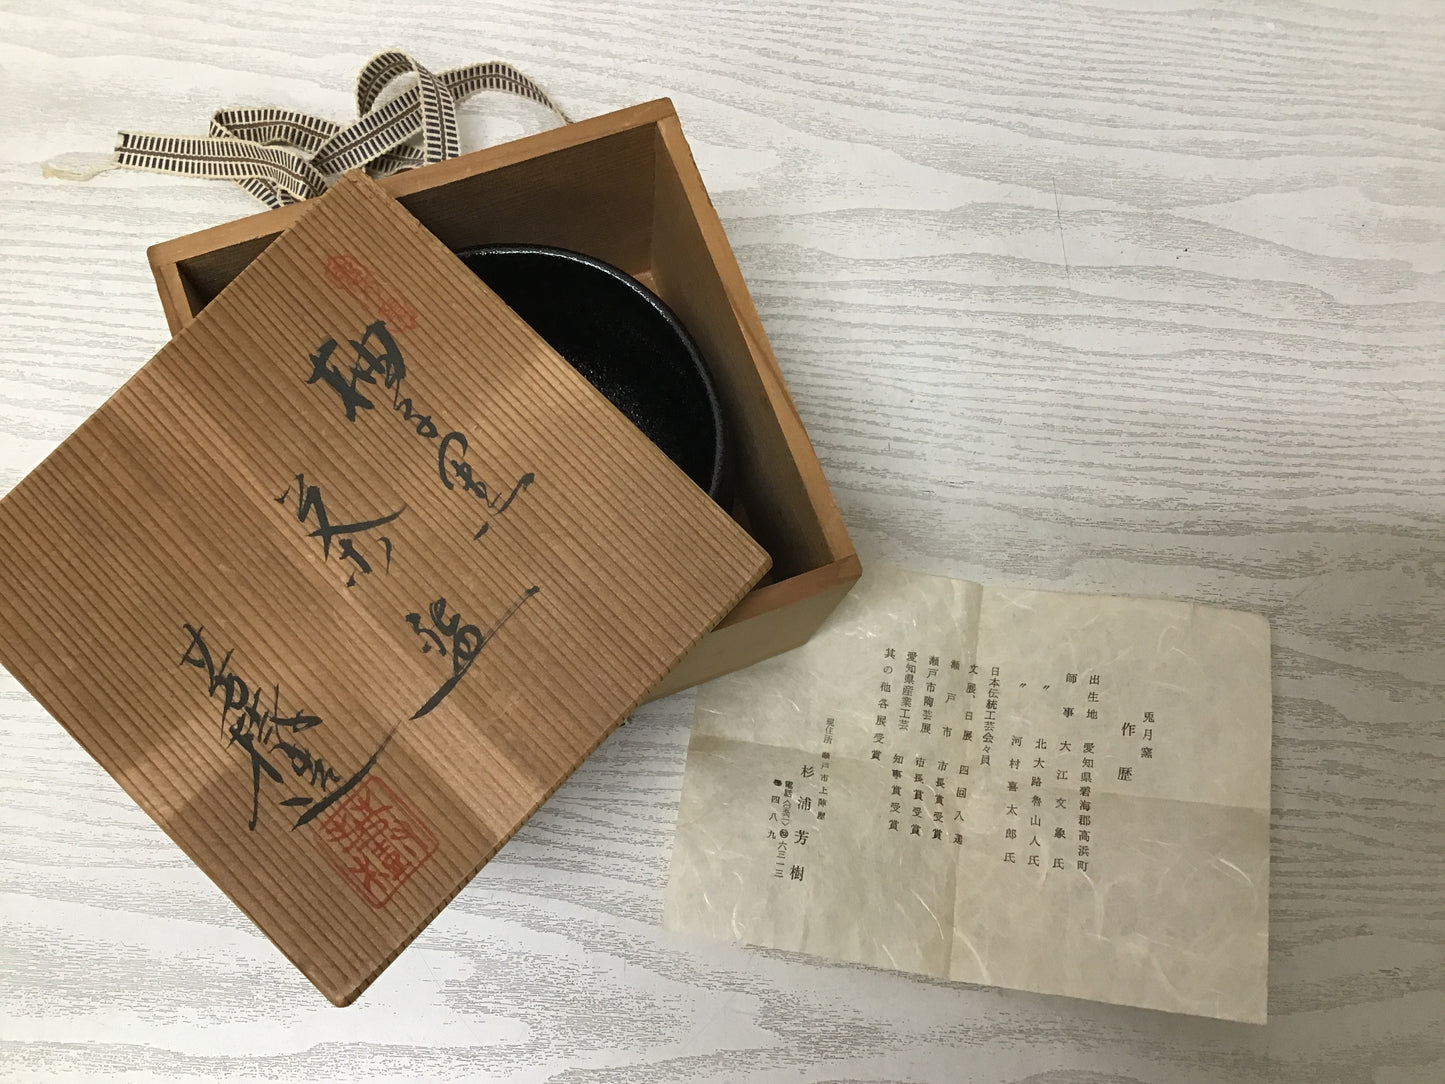 柚子黒
茶碗
芳樹造
兎月窯
作歴
出生地 愛知県碧海郡高浜町
師事 大江文象氏
〃 北大路魯山人氏
〃 河村喜太郎氏
日本伝統工芸会々員
文展、日展 四回入選
瀬戸市 市長賞受賞
瀬戸市陶芸展 市長賞受賞
愛知県産業工芸 知事賞受賞
其の他各展受賞
現住所 瀬戸市上陣屋
杉浦芳樹
六三一三
四八九